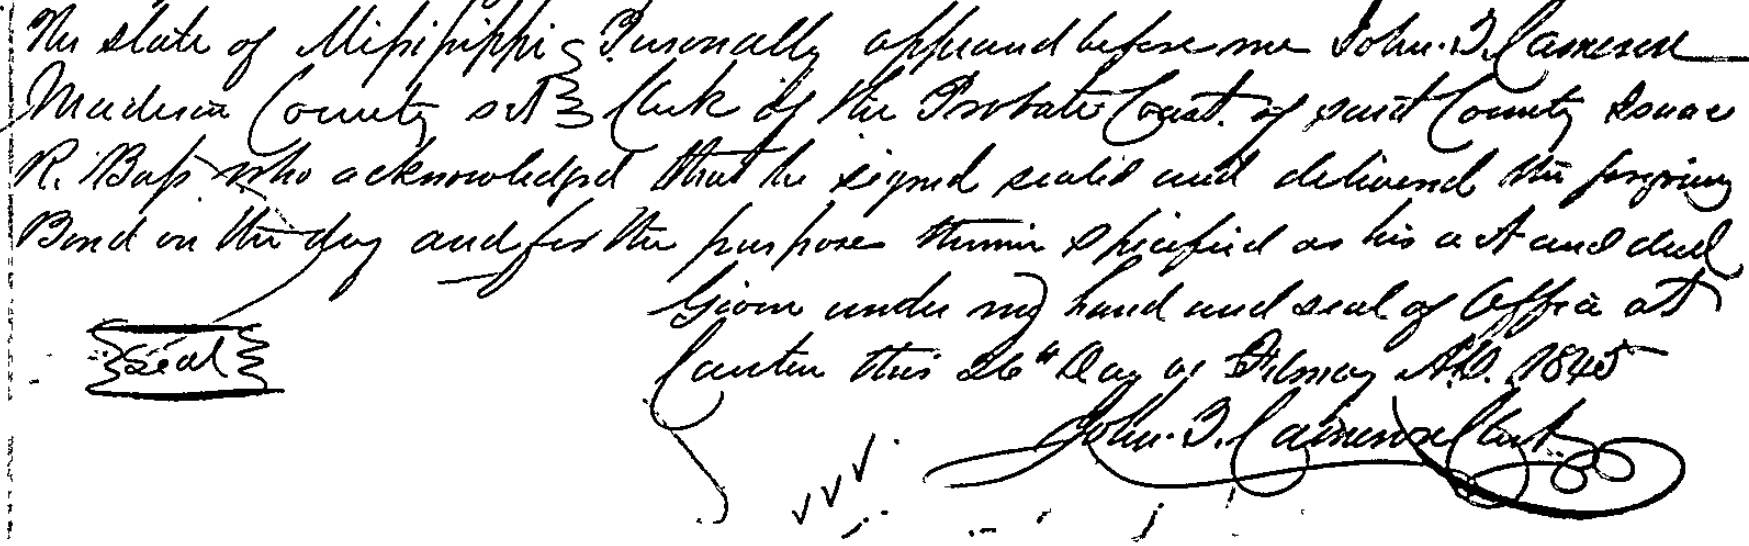 The State of Mississippi } Personally appeared before me John. T. Cameron
Madison County sct } Clerk of the Probate Court. of said County Isaac
R. Bass who acknowledged that he signed sealed and delivered the foregoing
Bond on the day and for the purposes therein specified as his act and deed
Given under my hand and seal of Office at
Canton this 26th Day of February A.D. 1845
{Seal}
John. T. Cameron Clerk.